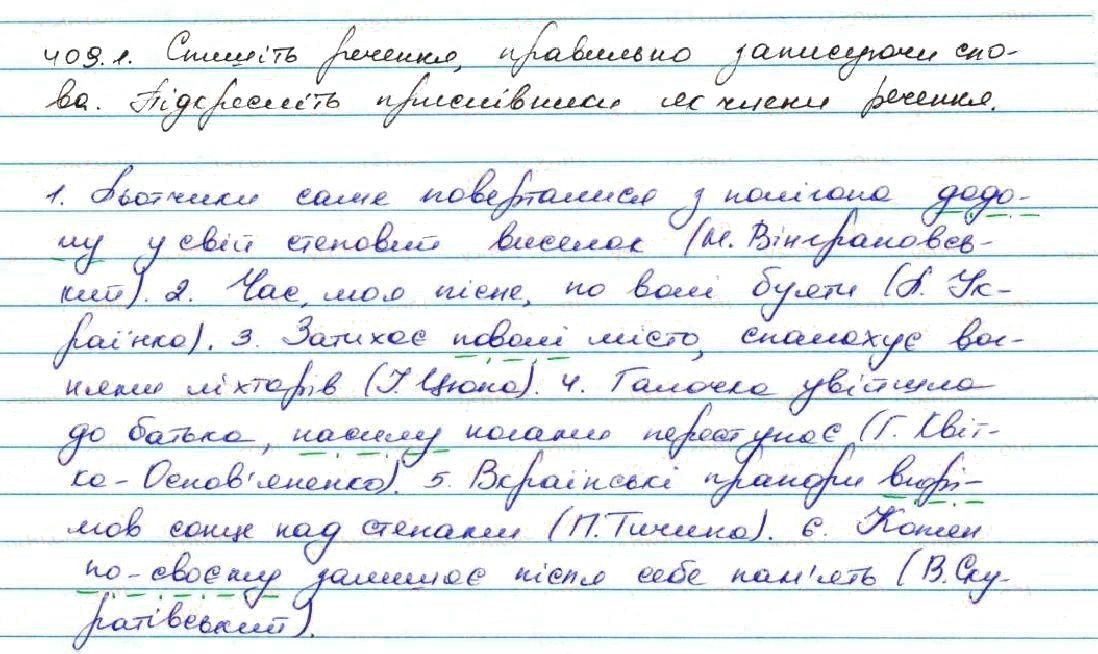 409.1. Спишіть речення, правильно записуючи сло-
ва. Підкресліть прислівники як члени речення.
1. Льотчики саме поверталися з полігона додо-
му у свій степовий виселок (М. Вінграновсь-
кий). 2. Час, моя пісне, по волі буяти (Л. Ук-
раїнка). 3. Затихає поволі місто, спалахує вог-
нями ліхтарів (І. Цюпа). 4. Галочка увійшла
до батька, насилу ногами переступає (Г. Квіт-
ка-Основ'яненко). 5. Вкраїнські прапори
мов сонце над степами (П. Тичина). 6. Кожен
по-своєму залишає після себе пам'ять (В. Ску-
ратівський).